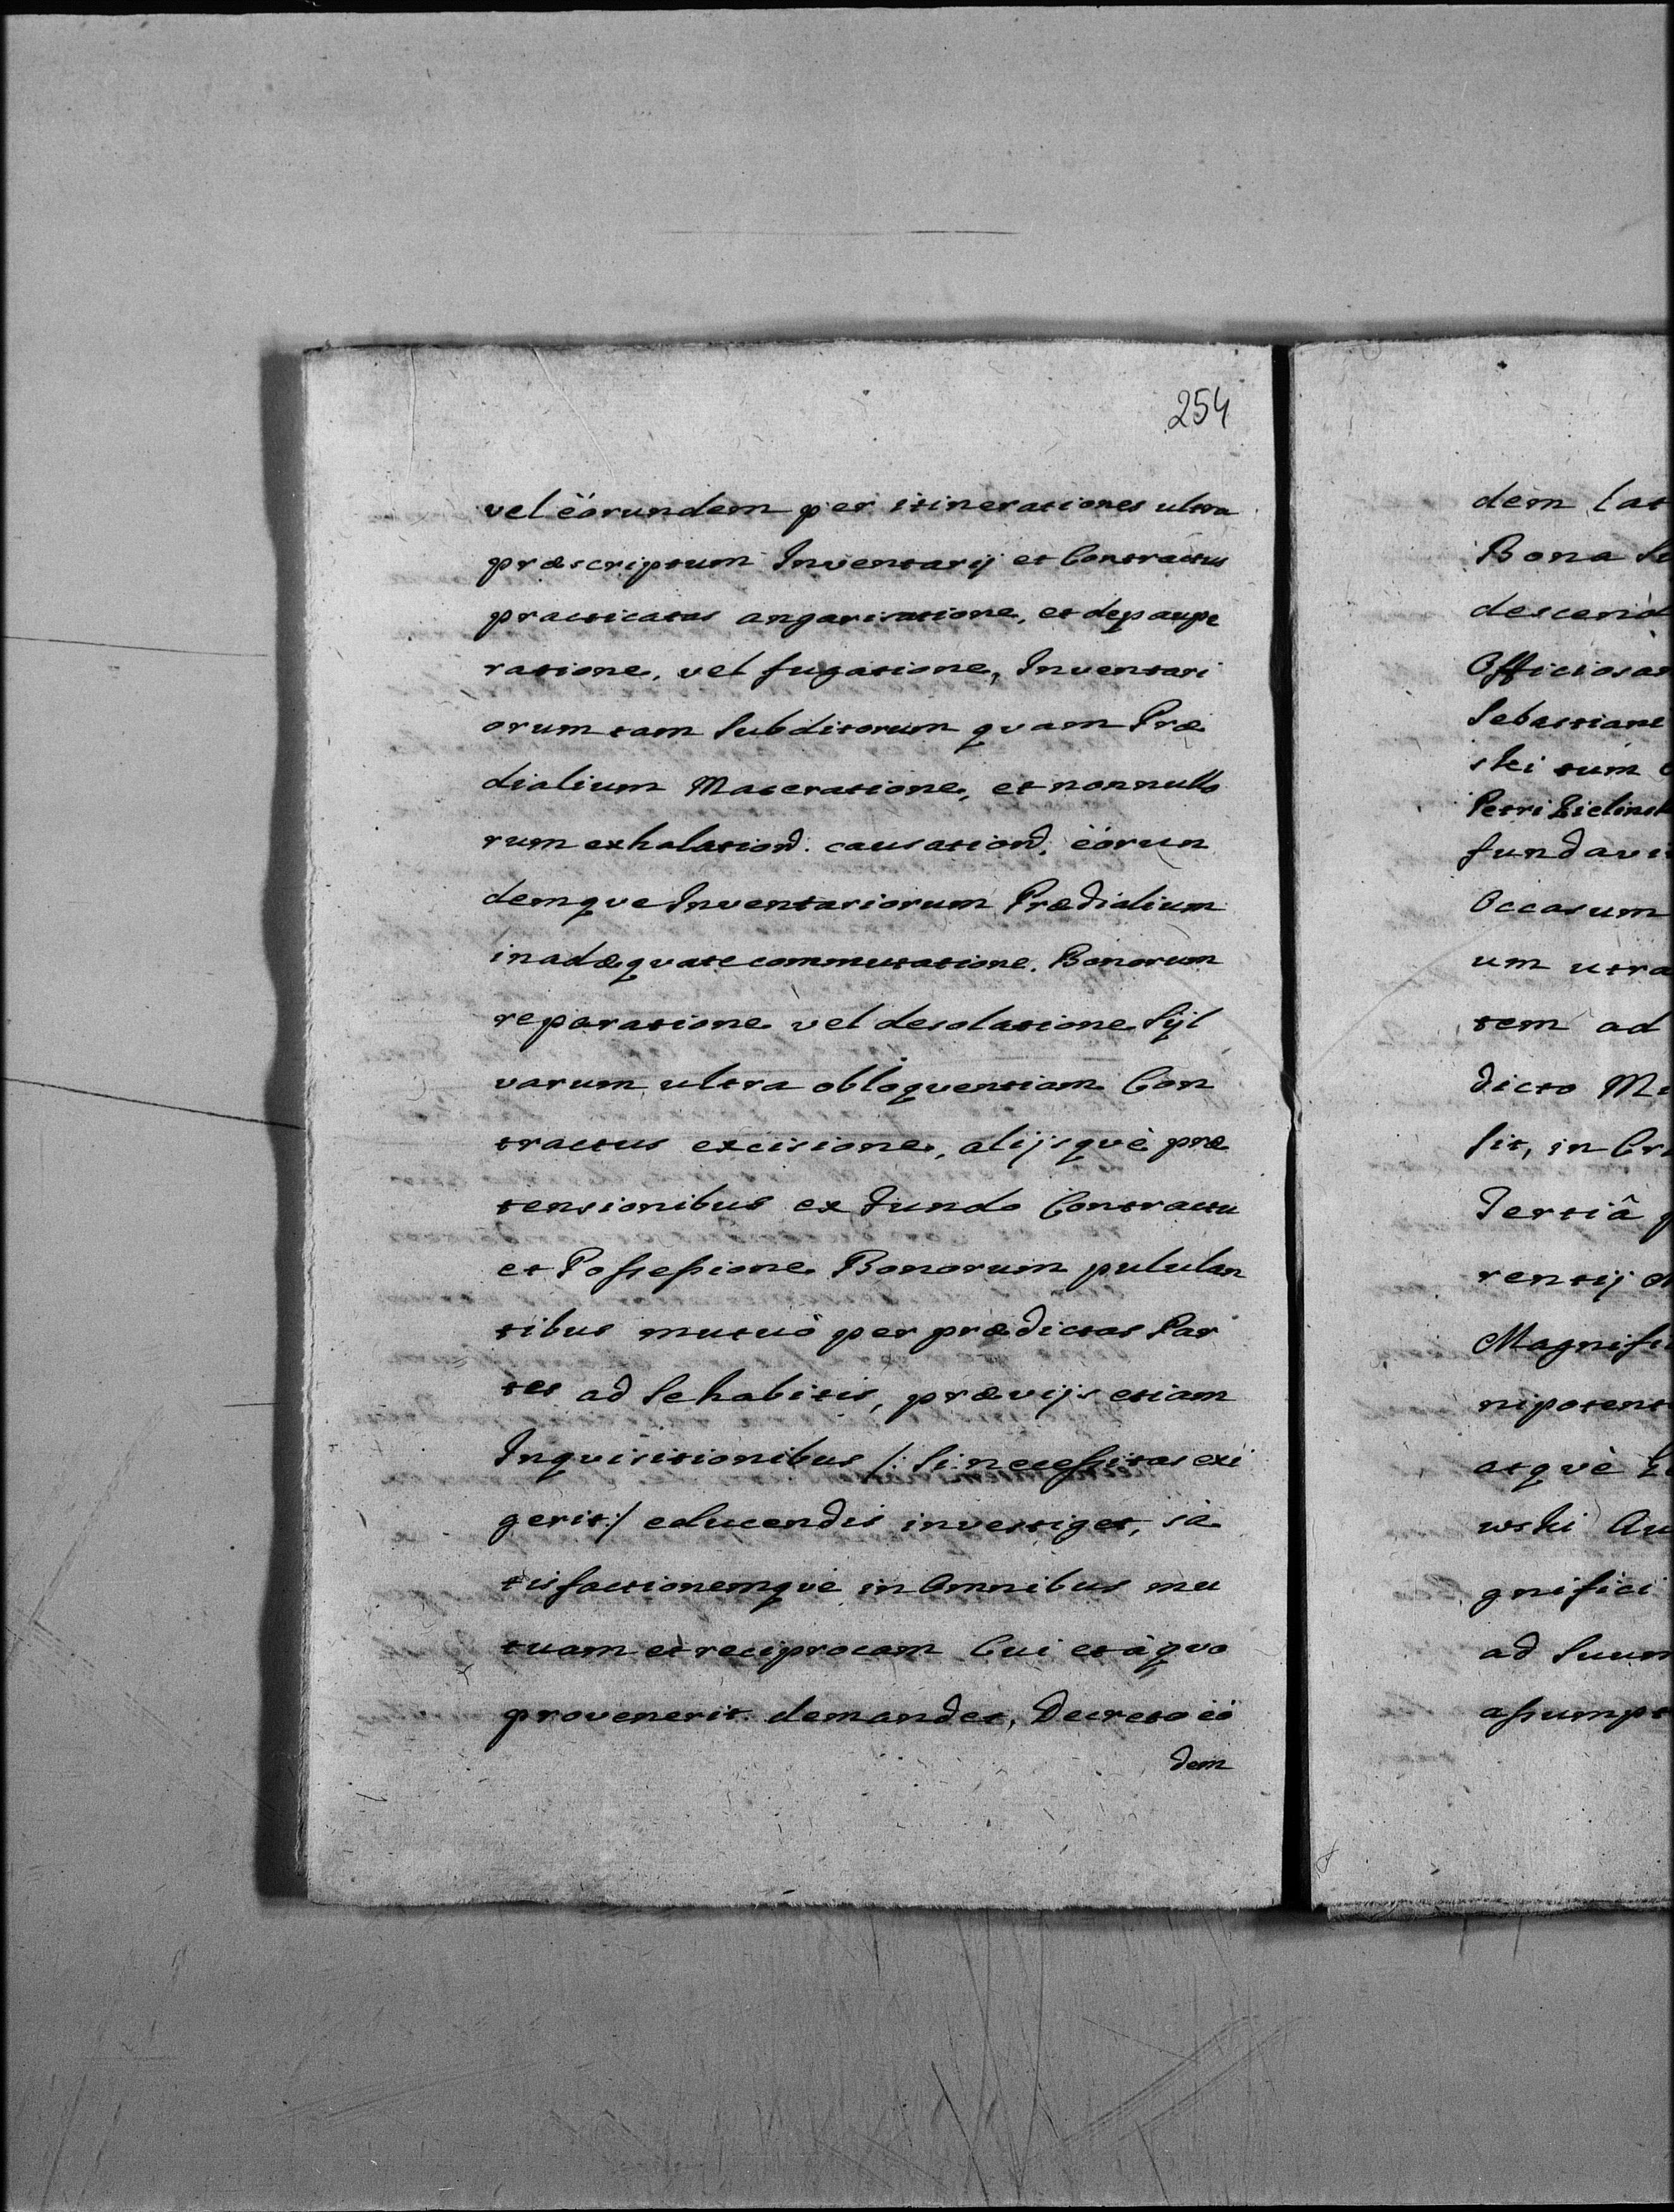 254
vel ëorundem per itinerationes ultra
præscriptum Inventarij et Contractus
practicatas angarisatione, et depaupe
ratione, vel fugatione, Inventari
orum tam Subditorum qvam Præ
dialium Maceratione, et nonnullo
rum exhalationẽ causationẽ, ëorun
demqve Inventariorum Prædialium
inadæqvate commutatione, Bonorum
reparatione vel desolatione Syl
varum ultra obloqventiam Con
tractus excisione, alijsqvè præ
tensionibus ex Fundo Contractu
et Possessione Bonorum pululan
tibus mutuò per prædictas Par
tes ad Se habitis, prævijs etiam
Inqvisitionibus /: Si necessitas exi
gerit :/ educendis investiget, sa
tisfactionemqvè in Omnibus mu
tuam et reciprocam Cui et à qvo
provenerit demandet, Decreto eò
dem
dem lat
Bona
descend
Officiosar
Sebastiane
ski tùm
Petri Zielinsk
fundavi
Occasum
um utra
tem ad
dicto
sit, in
Tertiâ
rentij
Magnifi
nipotent
atqvè
wski
gnifici
ad Suum
assumpt